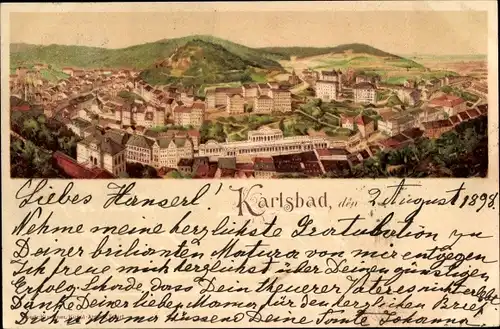 Karlsbad, den 2 August 1898
Liebes Hanserl!
Nehme meine herzlichste Gratulation zu
Deiner brilianten Matura von mir entgegen
Ich freue mich herzlichst über Deinen günstigen
Erfolg Schade dass Dein theuerer Vater es nicht erlebt
Danke Deiner lieben Mama für den herzlichen Brief
Dich u Mama küssend Deine Tante Johanna